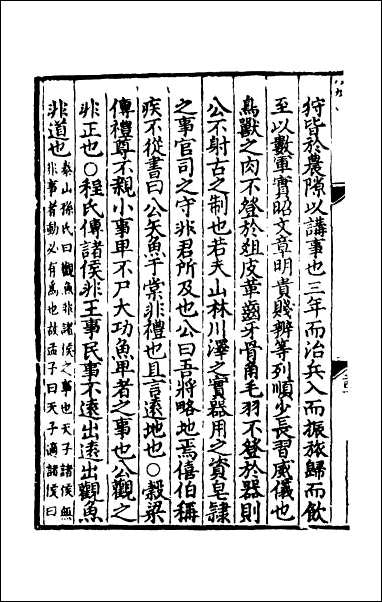 狩皆於農隙以講事也三年而治兵入而振旅歸而飲
至以數軍實昭文章明貴賤辨等列順少長習威儀也
鳥獸之肉不登於俎皮革齒牙骨角毛羽不登於器則
公不射古之制也若夫山林川澤之實器用之資皂隸
之事官司之守非君所及也公曰吾將略地焉僖伯稱
疾不從書曰公矢魚于棠非禮也且言遠地也○穀梁
傳禮尊不親小事卑不尸大功魚卑者之事也公觀之
非正也○程氏傳諸侯非王事民事不遠出遠出觀魚
非道也
泰山孫氏曰觀魚非諸侯之事也天子諸侯無
非事者動必有為也故孟子曰天子適諸侯曰